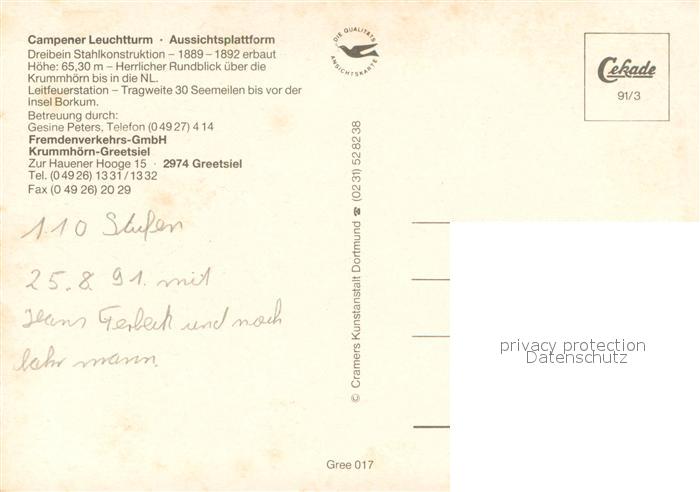 Campener Leuchtturm · Aussichtsplattform
Dreibein Stahlkonstruktion – 1889 – 1892 erbaut
Höhe: 65,30 m – Herrlicher Rundblick über die
Krummhörn bis in die NL.
Leitfeuerstation – Tragweite 30 Seemeilen bis vor der
Insel Borkum.
Betreuung durch:
Gesine Peters, Telefon (0 49 27) 4 14
Fremdenverkehrs-GmbH
Krummhörn-Greetsiel
Zur Hauener Hooge 15 · 2974 Greetsiel
Tel. (0 49 26) 13 31 / 13 32
Fax (0 49 26) 20 29
110 Stufen
25.8.91. mit
Hans und noch
mann.
DIE QUALITÄTS
ANSICHTSKARTE
© Cramers Kunstanstalt Dortmund ☎ (02 31) 52 82 38
Cekade
91/3
privacy protection
Datenschutz
Gree 017